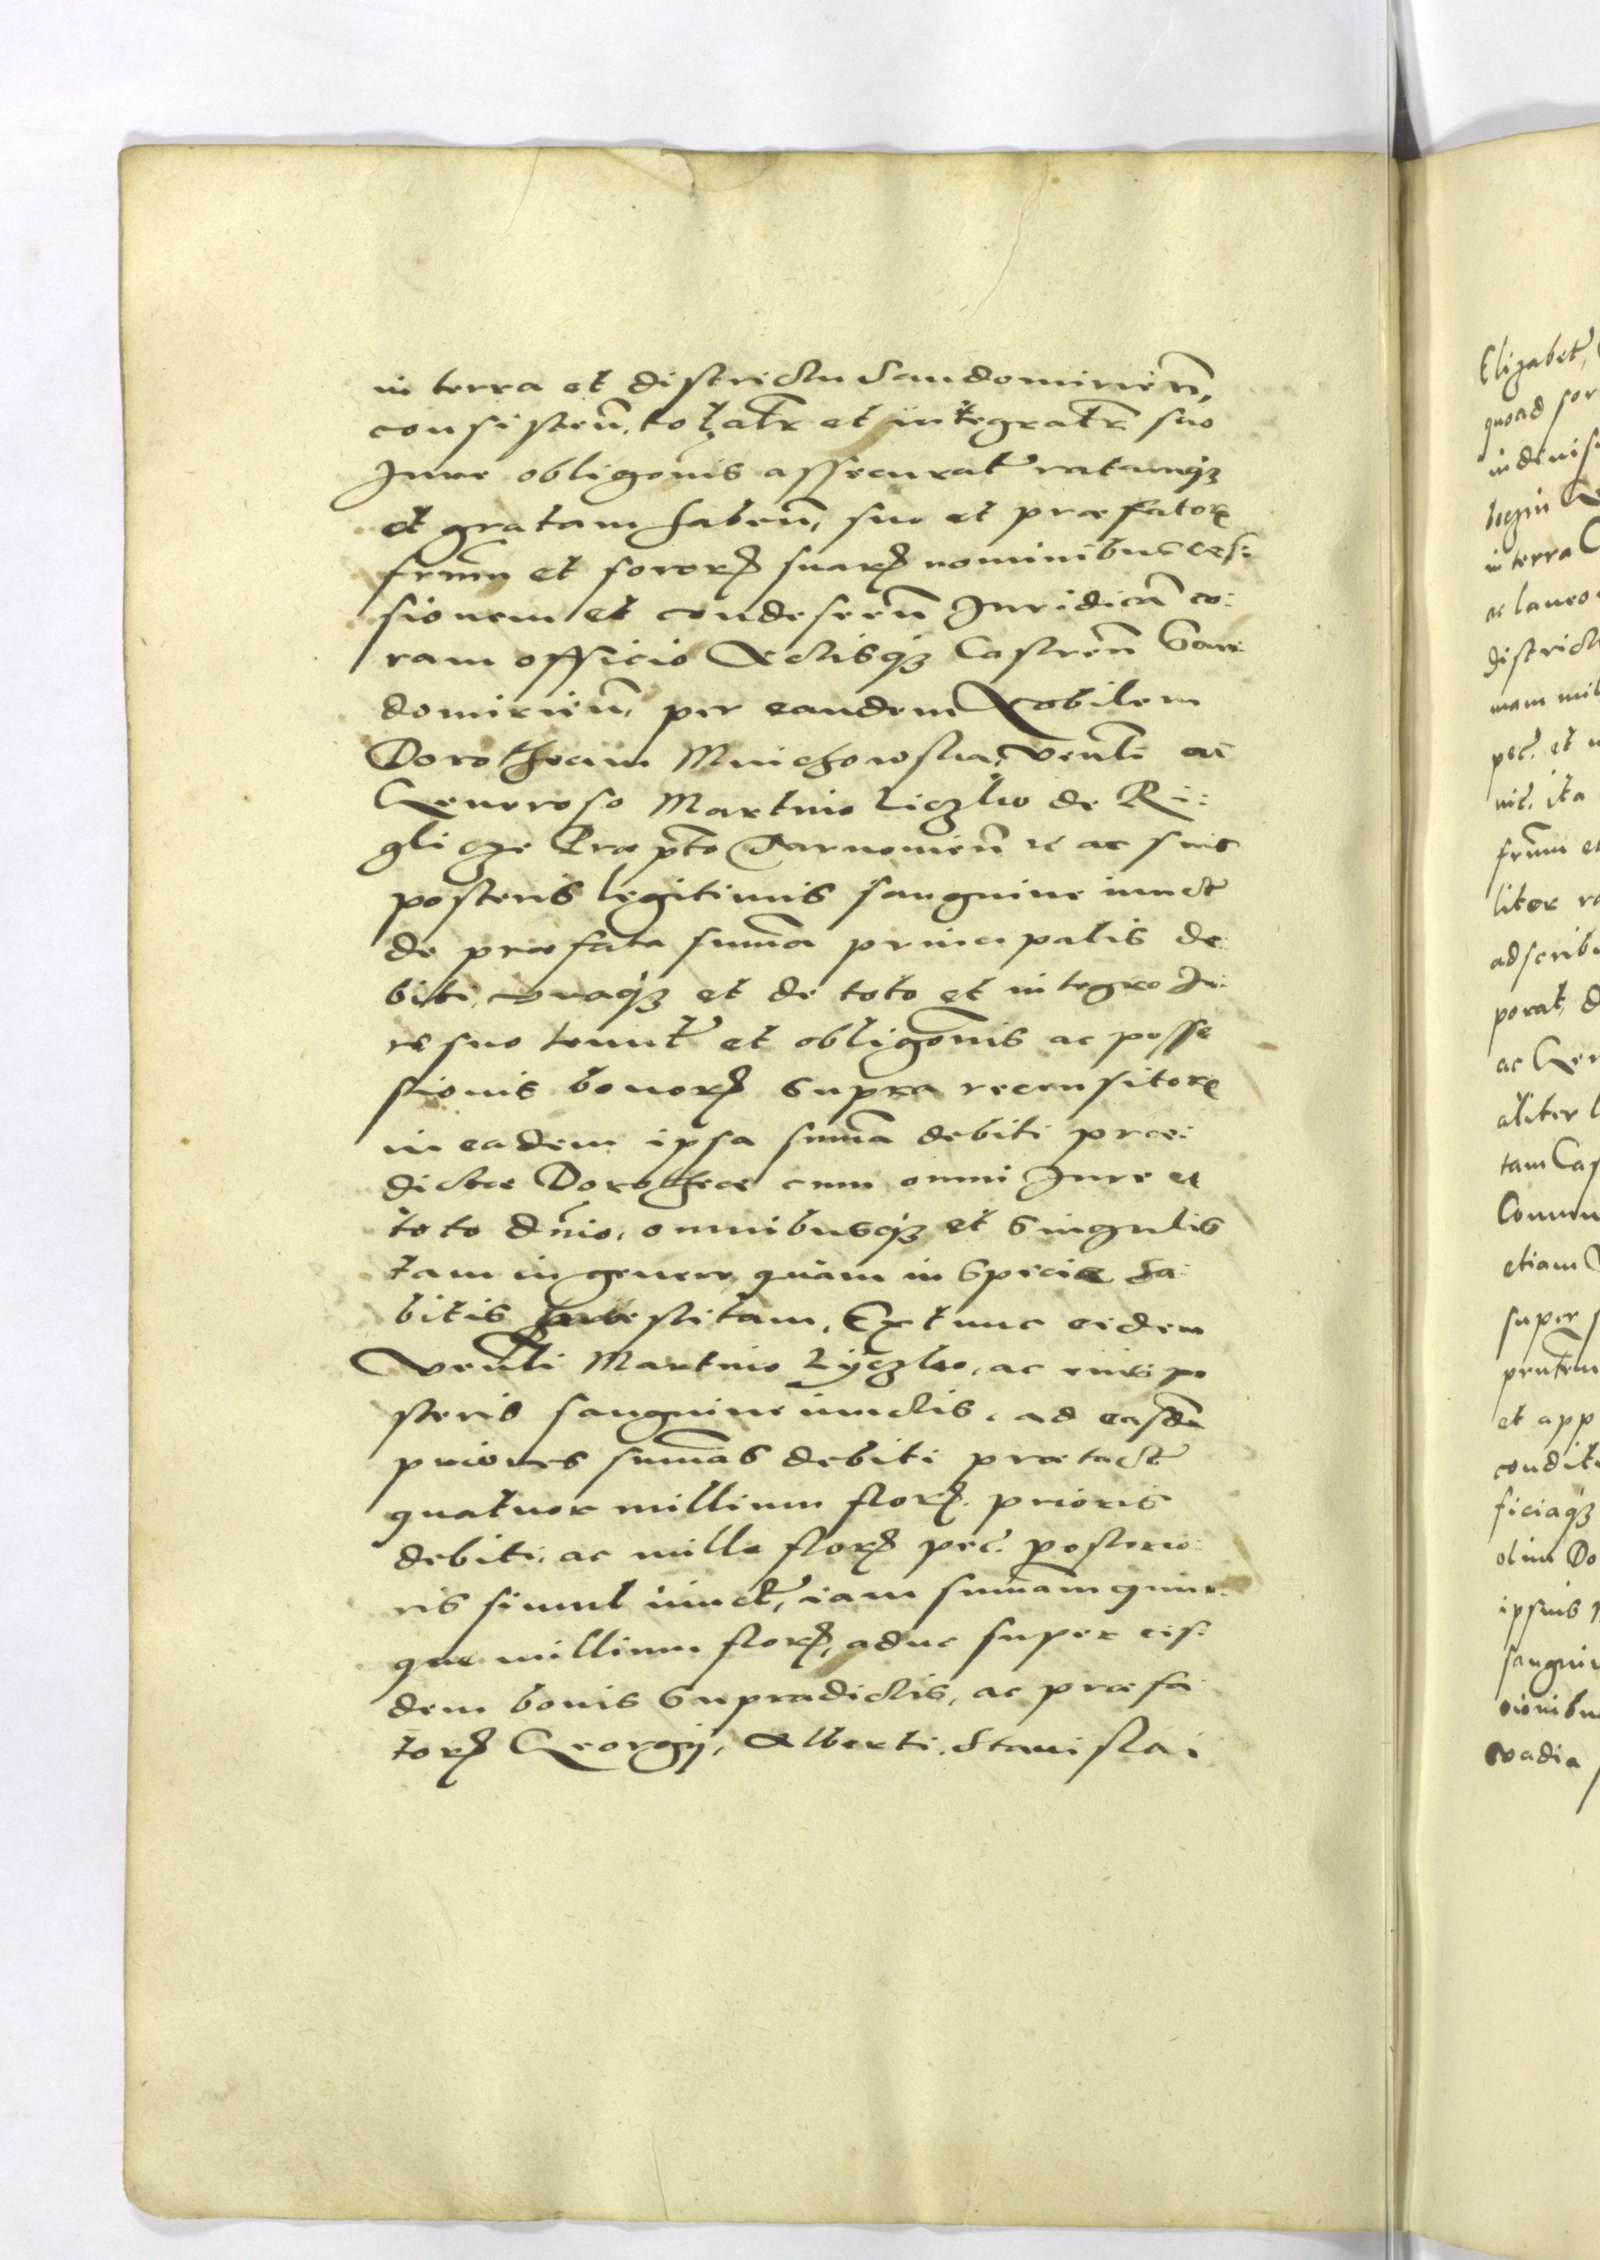 in terra et districtu Sandomirien̄,
consisten̄. totalr̄ et integralr̄ suo
Jure obligōnis assecurat̄ ratamqȝ
et gratam haben̄, suo et præfatorꝝ
frūm et sororꝝ suarꝝ nominibus ces:
sionem et condescen̄ Juridicā co:
ram officio Actisqȝ Castren̄ San:
domirien̄, per eandem Nobilem
Dorotheam Mnichowska, Venli ac
Generoso Martino Liczko de Ri:
glicze Præpto Tarnowien̄ ac suis
posteris legitimis sanguine iunct̄
de præfata sum̄a principalis de:
biti, et de toto et integro Ju:
re suo tenut̄ et obligōnis ac posse
sionis bonorꝝ supra recensitorꝝ
in eadem ipsa sum̄a debiti præ:
dictæ Dorotheæ cum omni Jure et
toto dn̄io, omnibusqȝ et singulis
tam in genere quam in specie ha:
bitis, Extunc eidem
Venli Martino Lyczko, ac eius po
steris sanguine iunctis, ad easd̄
priores sum̄as debiti prætact̄
quatuor millium florꝝ prioris
debiti, ac mille florꝝ pec̄. posterio:
ris simul iunct̄, iam sum̄am quin:
que millium florꝝ, aduc super eis:
dem bonis supradictis, ac præfa:
torꝝ Georgij, Alberti, Stanislai
Elizabet̄
quoad sor
in terra
ac laneo
districtu
mam mil
pec̄. et
ita
frūm et
liter ra
adscrib
porat̄, d
ac Gen
aliter
tam Cas
Commu
etiam
super
et app
condit
ficiaqȝ
olim Do
ipsius
sangui
vadia